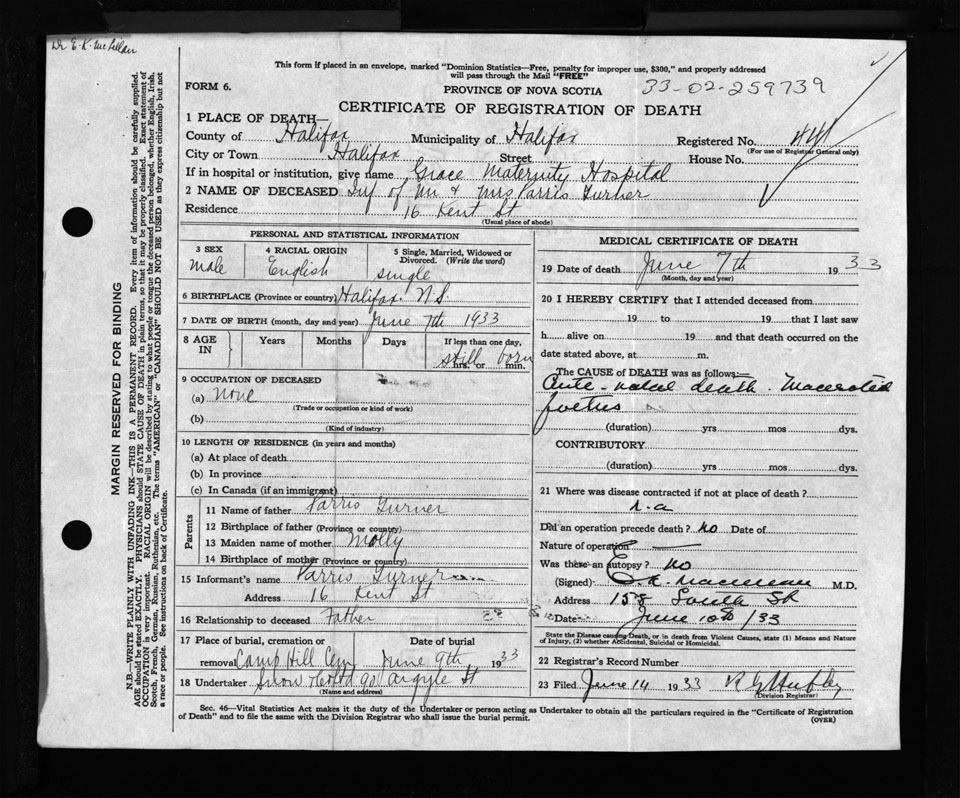 Dr E. K. McLellan
This form if placed in an envelope, marked "Dominion Statistics—Free, penalty for improper use, $300," and properly addressed
will pass through the Mail "FREE"
FORM 6.
PROVINCE OF NOVA SCOTIA
33-02-259739
CERTIFICATE OF REGISTRATION OF DEATH
1 PLACE OF DEATH—
County of Halifax Municipality of Halifax Registered No.
(For use of Registrar General only)
City or Town Halifax Street House No.
If in hospital or institution, give name Grace Maternity Hospital
2 NAME OF DECEASED Inf of Mr & Mrs Parris Turner
Residence 16 Kent St
(Usual place of abode)
PERSONAL AND STATISTICAL INFORMATION
3 SEX 4 RACIAL ORIGIN 5 Single, Married, Widowed or Divorced. (Write the word)
male English single
6 BIRTHPLACE (Province or country) Halifax N.S.
7 DATE OF BIRTH (month, day and year) June 7th 1933
8 AGE IN Years Months Days If less than one day,
still born
hrs. or min.
9 OCCUPATION OF DECEASED
(a) None
(Trade or occupation or kind of work)
(b)
(Kind of industry)
10 LENGTH OF RESIDENCE (in years and months)
(a) At place of death
(b) In province
(c) In Canada (if an immigrant)
Parents
11 Name of father Parris Turner
12 Birthplace of father (Province or country)
13 Maiden name of mother Molly
14 Birthplace of mother (Province or country)
15 Informant's name Parris Turner
Address 16 Kent St
16 Relationship to deceased Father
17 Place of burial, cremation or removal Camp Hill Cem Date of burial June 9th 1933
18 Undertaker Snow & Co Ltd 90 Argyle St
(Name and address)
MEDICAL CERTIFICATE OF DEATH
19 Date of death June 7th 1933
(Month, day and year)
20 I HEREBY CERTIFY that I attended deceased from
19 to 19 that I last saw
h alive on 19 and that death occurred on the
date stated above, at m.
The CAUSE of DEATH was as follows:—
Ante-natal death. Macerated
foetus
(duration) yrs mos dys.
CONTRIBUTORY
(duration) yrs mos dys.
21 Where was disease contracted if not at place of death?
n.a
Did an operation precede death? no Date of
Nature of operation —
Was there an autopsy? no
(Signed) M.D.
Address 158 South St
Date June 10th /33
State the Disease causing Death, or in death from Violent Causes, state (1) Means and Nature
of Injury, (2) whether Accidental, Suicidal or Homicidal.
22 Registrar's Record Number
23 Filed June 14 1933
Division Registrar
Sec. 46—Vital Statistics Act makes it the duty of the Undertaker or person acting as Undertaker to obtain all the particulars required in the "Certificate of Registration
of Death" and to file the same with the Division Registrar who shall issue the burial permit.
(OVER)
MARGIN RESERVED FOR BINDING
N.B.—WRITE PLAINLY WITH UNFADING INK—THIS IS A PERMANENT RECORD. Every item of information should be carefully supplied.
AGE should be stated EXACTLY. PHYSICIANS should STATE CAUSE OF DEATH in plain terms, so that it may be properly classified. Exact statement of
OCCUPATION is very important. RACIAL ORIGIN will be described by stating to what people or tongue the deceased person belonged, whether English, Irish,
Scotch, French, German, Russian, Ruthenian, etc. The terms "AMERICAN" or "CANADIAN" SHOULD NOT BE USED as they express citizenship but not
a race or people. See instructions on back of Certificate.